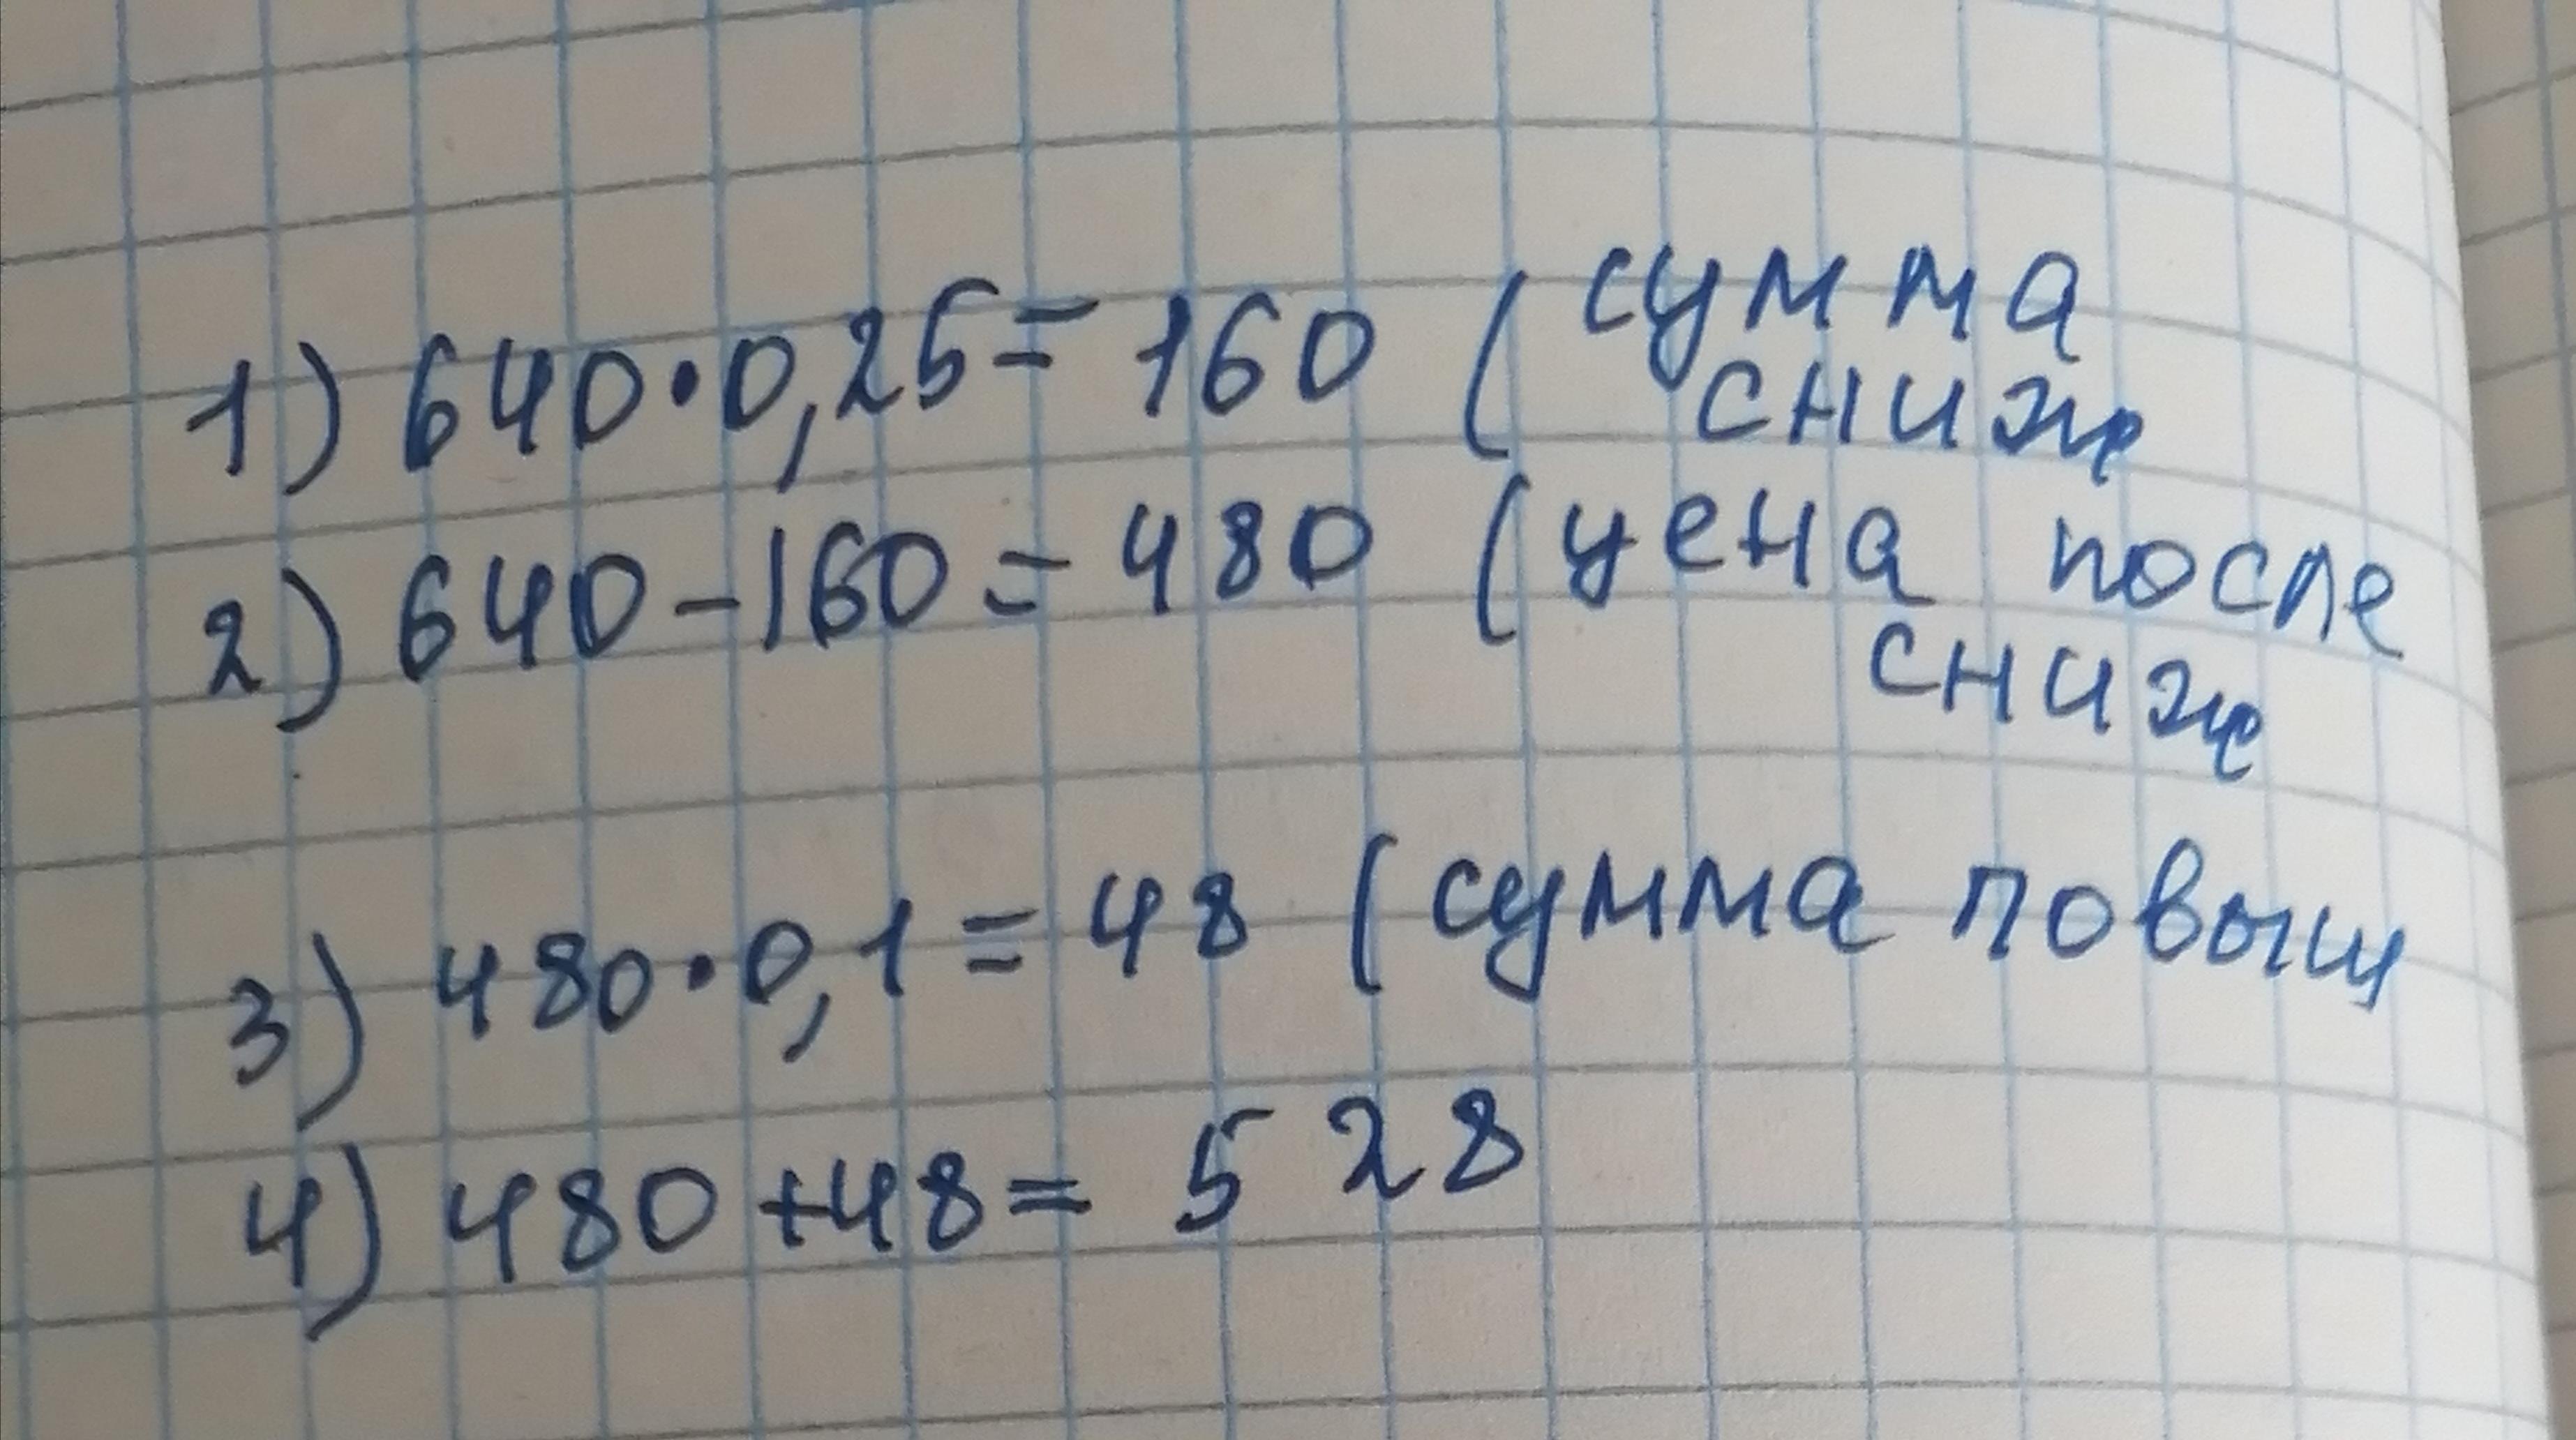 1) 640·0,25= 160 (сумма
сниж
2) 640-160= 480 (цена после
сниж
3) 480·0,1=48 (сумма повыш
4) 480+48= 528